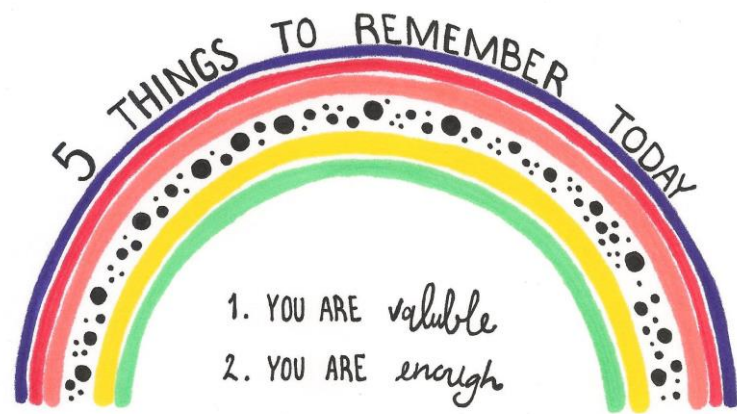 5 THINGS TO REMEMBER TODAY
1. YOU ARE valuble
2. YOU ARE enough